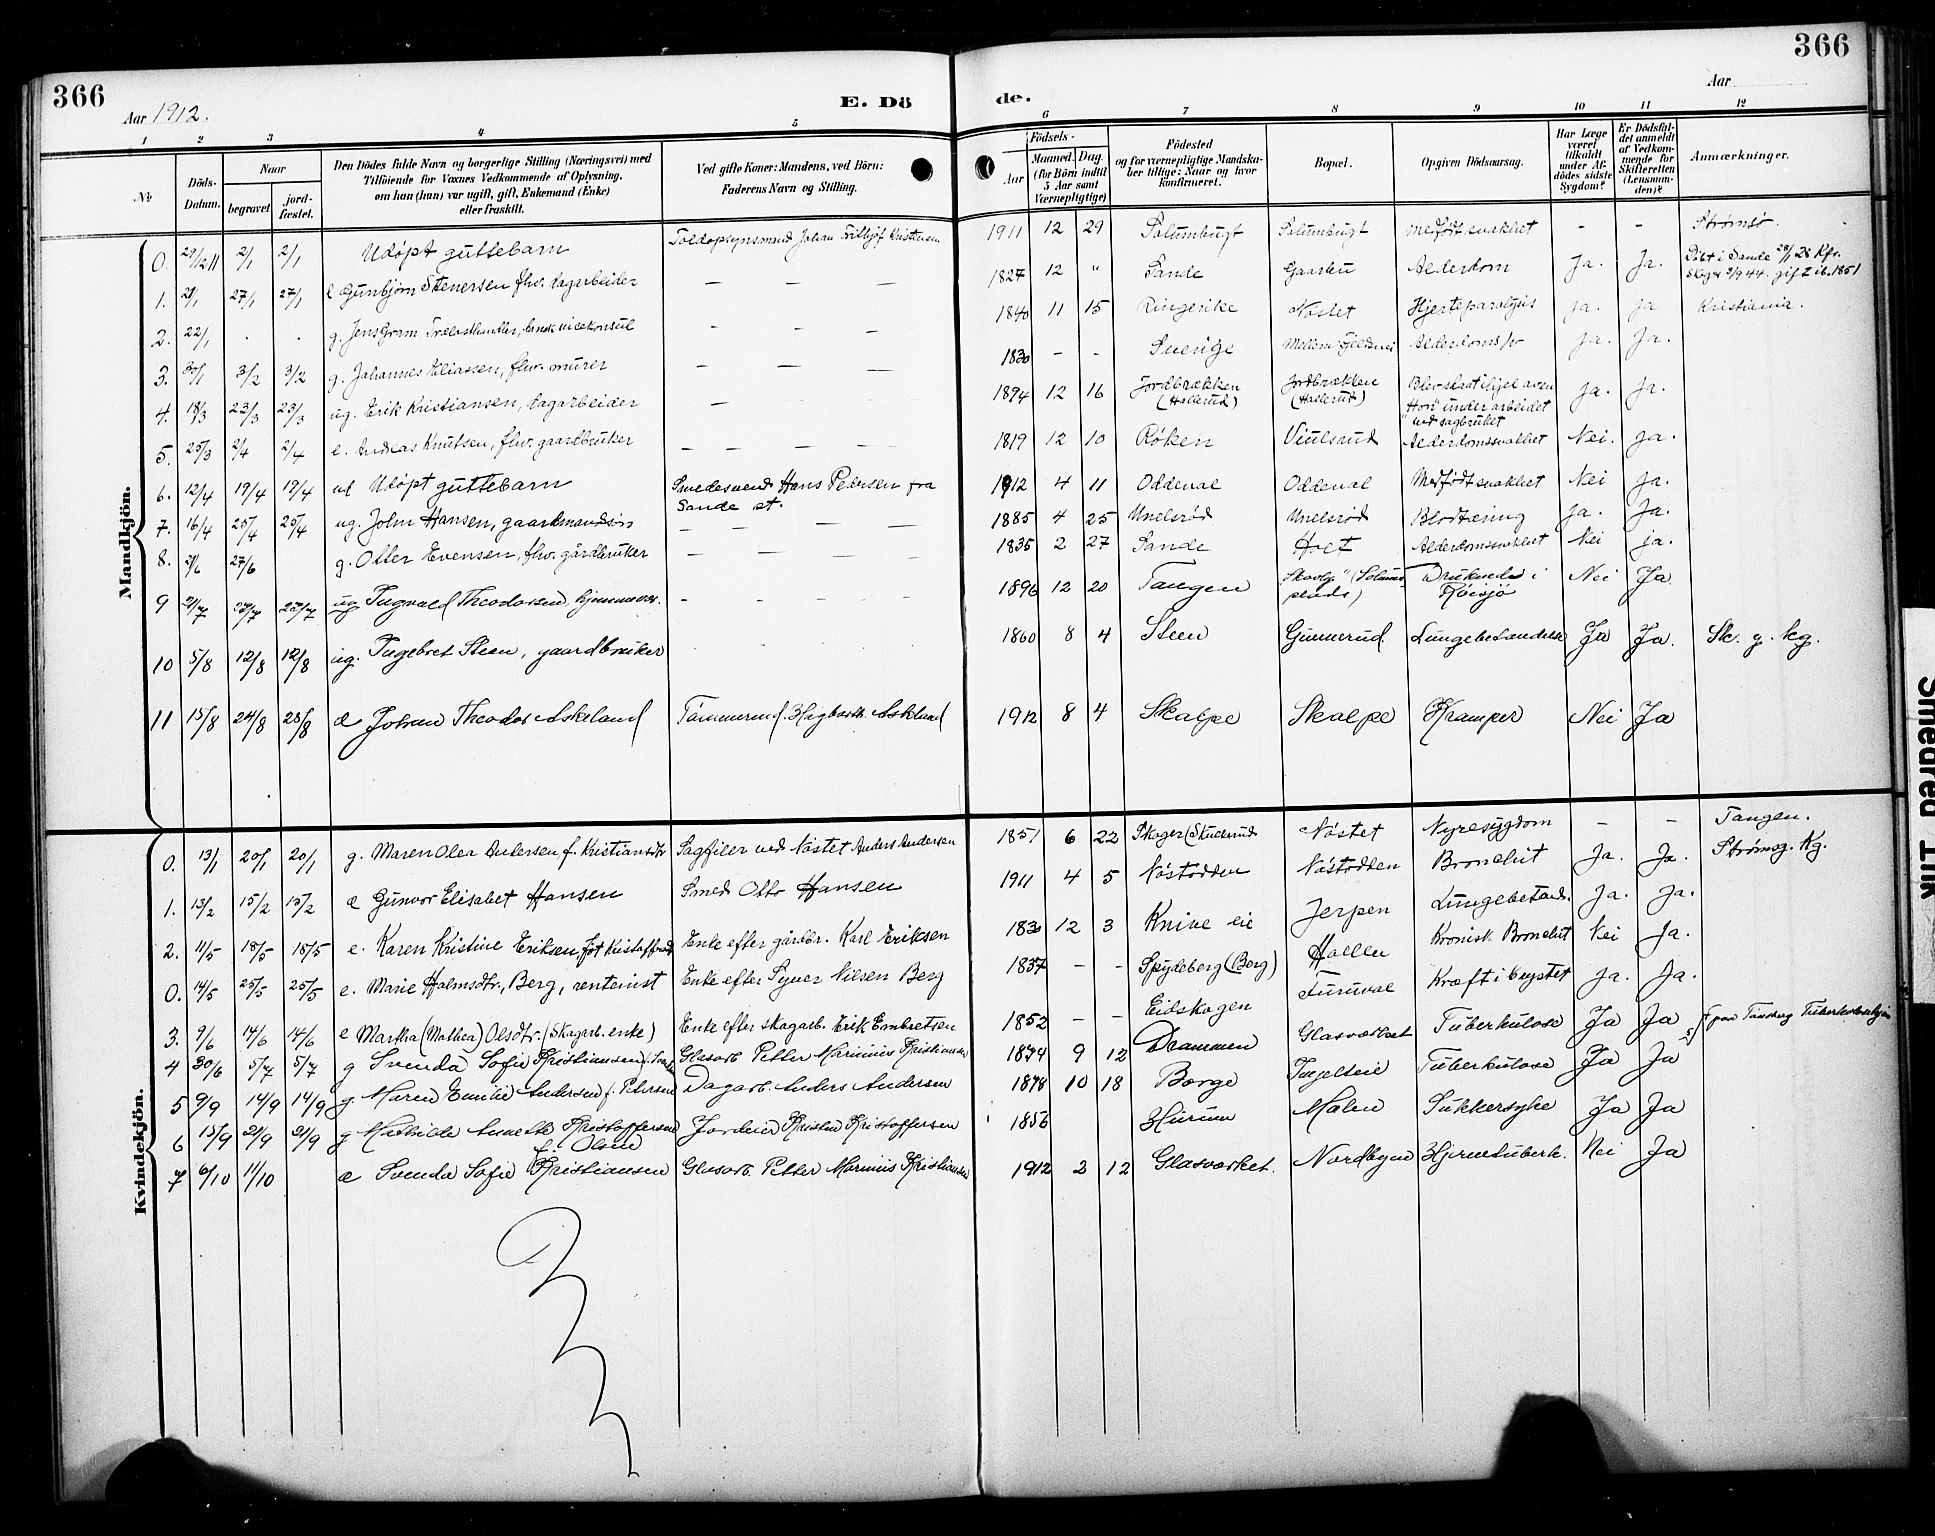 366
366
Aar 1912.
E. Dö
de.
Aar
1 2 3 4 5 6 7 8 9 10 11 12
No
Döds-Datum.
Naar
begravet
jord-fæstet.
Den Dödes fulde Navn og borgerlige Stilling (Næringsvei) med
Tilföiende for Voxnes Vedkommende af Oplysning,
om han (hun) var ugift, gift, Enkemand (Enke)
eller fraskilt.
Ved gifte Koner: Mandens, ved Börn:
Faderens Navn og Stilling.
Födsels-
Aar
Maaned. Dag.
(for Börn indtil
5 Aar samt
Værnepligtige)
Födested
og for værnepligtige Mandska-
ber tillige: Naar og hvor
konfirmeret.
Bopæl.
Opgiven Dödsaarsag.
Har Læge
været
tilkaldt
under Af-
dödes sidste
Sygdom?
Er Dödsfal-
det anmeldt
af Vedkom-
mende for
Skifteretten
(Lensman-
den)?
Anmærkninger.
Mandkjön.
0. 29/12 11 2/1 2/1 Udöpt guttebarn Toldopsynsmand Johan Kristensen 1911 12 29 Solumbugt Solumbugt medfödt svakhet - - Strömsö
1. 21/1 27/1 27/1 e Gunbjörn Stenersen fhv. dagarbeider — — — 1827 12 " Sande Gaarden Alderdom Ja. Ja. Döbt i Sande 28/1 28 Kfr. Skoger 2/9 44. gift ib. 1851
2. 22/1 . . g. Jens Gram Trælasthandler, vicekonsul - - - 1840 11 15 Ringerike Nöstet Hjerteparalysis ja. ja Kristiania.
3. 30/1 3/2 3/2 g. Johannes Eliassen, fhv. murer — — — 1830 - - Sverige Alderdomssv ja. Ja.
4. 18/3 23/3 23/3 ug. Erik Kristiansen, dagarbeider — — — 1894 12 16 Jordbrækken (Hallerud) Jordbrækken (Hallerud) Blev slaat ihjel av en "Hon" under arbeidet ved sagbruket ja. Ja.
5. 25/3 2/4 2/4 e. Andreas Knutsen, fhv. gaardbruker — — — 1819 12 10 Röken Viulsrud Alderdomssvakhet Nei. ja.
6. 12/4 19/4 19/4 ud Udöpt guttebarn Smedesvend Hans Pedersen fra Sande st. 1912 4 11 Oddeval Oddeval Medfödt svakhet Nei ja.
7. 16/4 25/4 25/4 ug. John Hansen, gaardmandssön — — — 1885 4 25 Unelsröd Unelsröd Blodtæring ja. Ja.
8. 21/6 27/6 g. Otter Evensen, fhv. gårdbruker — — — 1835 2 27 Sande Holt Alderdomssvakhet Nei ja.
9 21/7 28/7 28/7 ug Ingvald Theodorsen, hjemmeværende - - - 1896 12 20 Tangen Druknede i Röisjö Nei Ja
10 5/8 12/8 12/8 ug. Ingebret Steen, gaardbruker 1860 8 4 Steen Gunnerud Lungebetændelse Ja Ja. Sk. g. kg.
11 15/8 24/8 28/8 æ Johan Theodor Askeland Tömmermd. Hagbarth Askeland 1912 8 4 Skalpe Skalpe Kramper Nei Ja
Kvindekjön.
0. 13/1 20/1 20/1 g. Maren Olea Andersen f. Kristiansdtr Sagfiler ved Nöstet Anders Andersen 1851 6 22 Skoger (Stubberud) Nöstet Nyresygdom — — Tangen.
1. 13/2 15/2 15/2 æ Gunvor Elisabet Hansen Smed Otto Hansen 1911 4 5 Nöstodden Nöstodden Bronchit Ja. Ja. Strömsg. Kg.
2. 11/5 18/5 18/5 e. Karen Kristine Eriksen, fdt Kristoffersd. Enke efter gårdbr. Karl Eriksen 1830 12 3 Knive eie Jerpen Lungebetænd. Ja. Ja.
0. 14/5 25/5 25/5 e. Marie Holmsdtr., Berg, rentenist Enke efter Syver Nilsen Berg 1837 - - Spydeberg (Berg) Hallen Kronisk Bronchit Nei Ja.
3. 9/6 14/6 14/6 e Martha (Mathea) Olsdtr. (Skogarb. enke) Enke efter skogarb. Erik Embretsen 1852 — — Eidskogen Furuval Kræft i brystet ja. Ja.
4 30/6 5/7 5/7 g Svenda Sofie Kristiansen Glasarb. Petter Marinius Kristiansen 1874 9 12 Drammen Glasværket Tuberkulose Ja Ja
5 9/9 14/9 14/9 g. Maren Emilie Andersen f. Petersen Dagarb. Anders Andersen 1878 10 18 Borge Tuberkulose Ja Ja
6 15/9 21/9 21/9 g Mathilde Kristoffersen f. Olsen Jordeier Kristen Kristoffersen 1856 Hurum Malen Sukkersyke Ja Ja
7 6/10 11/10 æ Svenda Sofie Kristiansen Glasarb. Petter Marinius Kristiansen 1912 2 12 Glasværket. Nordbyen Hjernetuberk. Nei Ja
Smedrud Trik